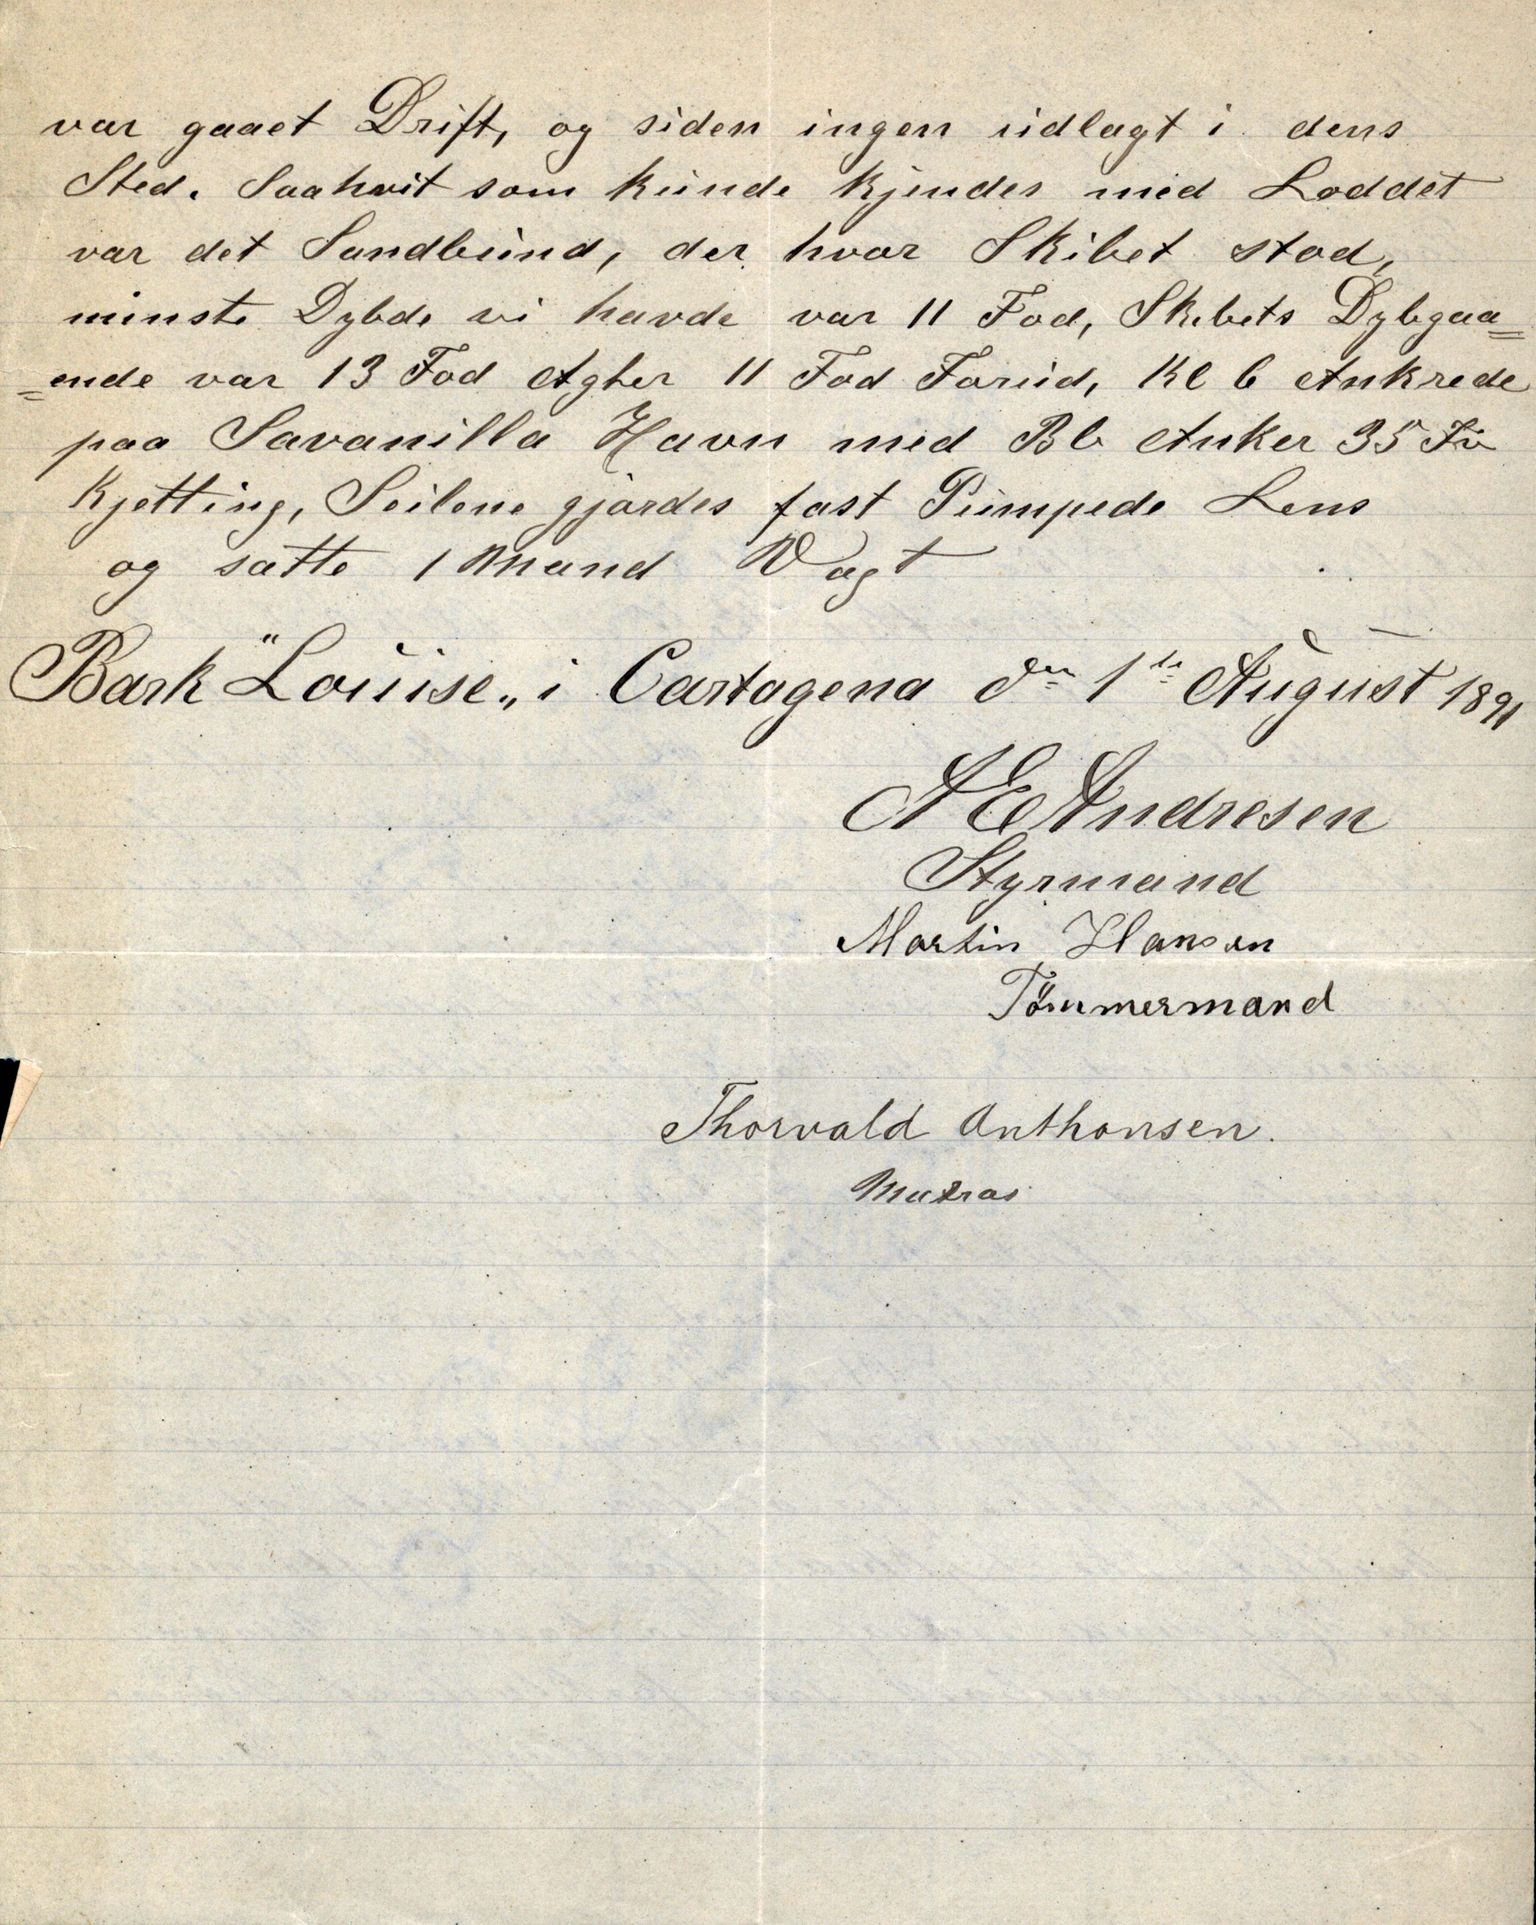 var gaaet Drift, og siden ingen udlagt i dens
Sted. Saahvit som kunde kjendes med Loddet
var det Sandbund, der hvor Skibet stod,
minste Dybde vi havde var 11 Fod, Skibets Dybgaa=
=ende var 13 Fod Agter 11 Fod Forud, Kl 6 Ankrede
paa Savanilla Havn med Bb Anker 35 Fv
Kjetting, Seilene gjordes fast Pumpede Lens
og satte 1 Mand Vagt
Bark "Louise„ i Cartagena dn 1ste August 1891
A E Andresen
Styrmand
Martin Hansen
Tømmermand
Thorvald Anthonsen.
Matros